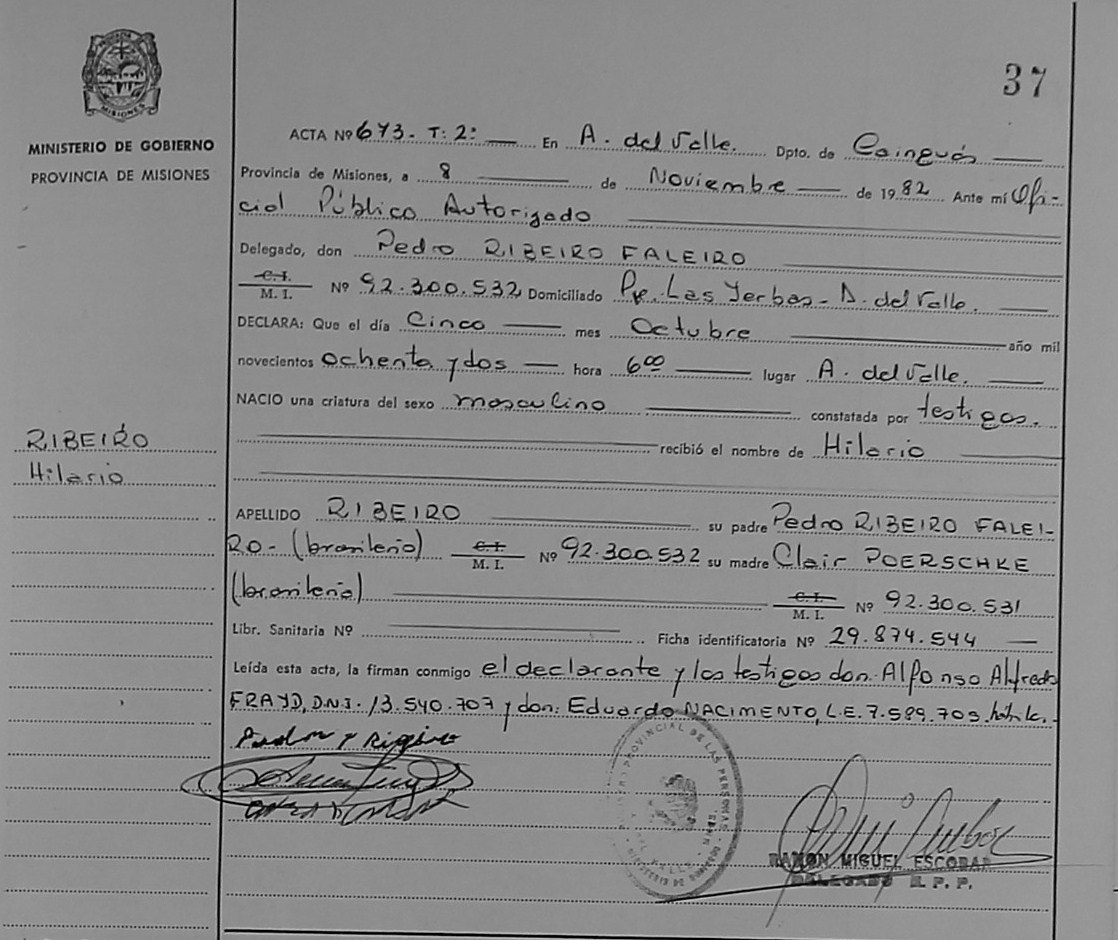 PROVINCIA DE
MISIONES
MINISTERIO DE GOBIERNO
PROVINCIA DE MISIONES
37
ACTA Nº 673 - T: 2º En A. del Valle. Dpto. de Cainguás
Provincia de Misiones, a 8 de Noviembre de 1982 Ante mí Ofi-
cial Público Autorizado
Delegado, don Pedro RIBEIRO FALEIRO
C. I.
M. I. Nº 92.300.532 Domiciliado Pje. Las Yerbas - A. del Valle.
DECLARA: Que el día Cinco mes Octubre año mil
novecientos ochenta y dos hora 600 lugar A. del Valle.
NACIO una criatura del sexo masculino constatada por testigos.
RIBEIRO
recibió el nombre de Hilario
Hilario
APELLIDO RIBEIRO su padre Pedro RIBEIRO FALEI-
RO - (brasileño) C. I. M. I. Nº 92.300.532 su madre Clair POERSCHKE
(brasileña) C. I. M. I. Nº 92.300.531
Libr. Sanitaria Nº Ficha identificatoria Nº 29.874.544
Leída esta acta, la firman conmigo el declarante y los testigos don. Alfonso Alfredo
FRAYD, D.N.I. 13.540.707 y don. Eduardo NACIMENTO, L.E. 7.589.703
PROVINCIAL DE LAS PERSONAS
RAMON MIGUEL ESCOBAR
DELEGADO R. P. P.